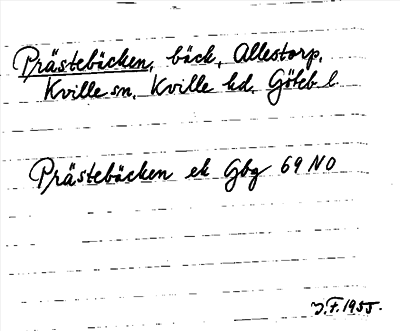 Prästebäcken, bäck, Allestorp,
Kville sn, Kville hd, Göteb l.
Prästebäcken ek Gbg 69 NO
J.F. 1955.